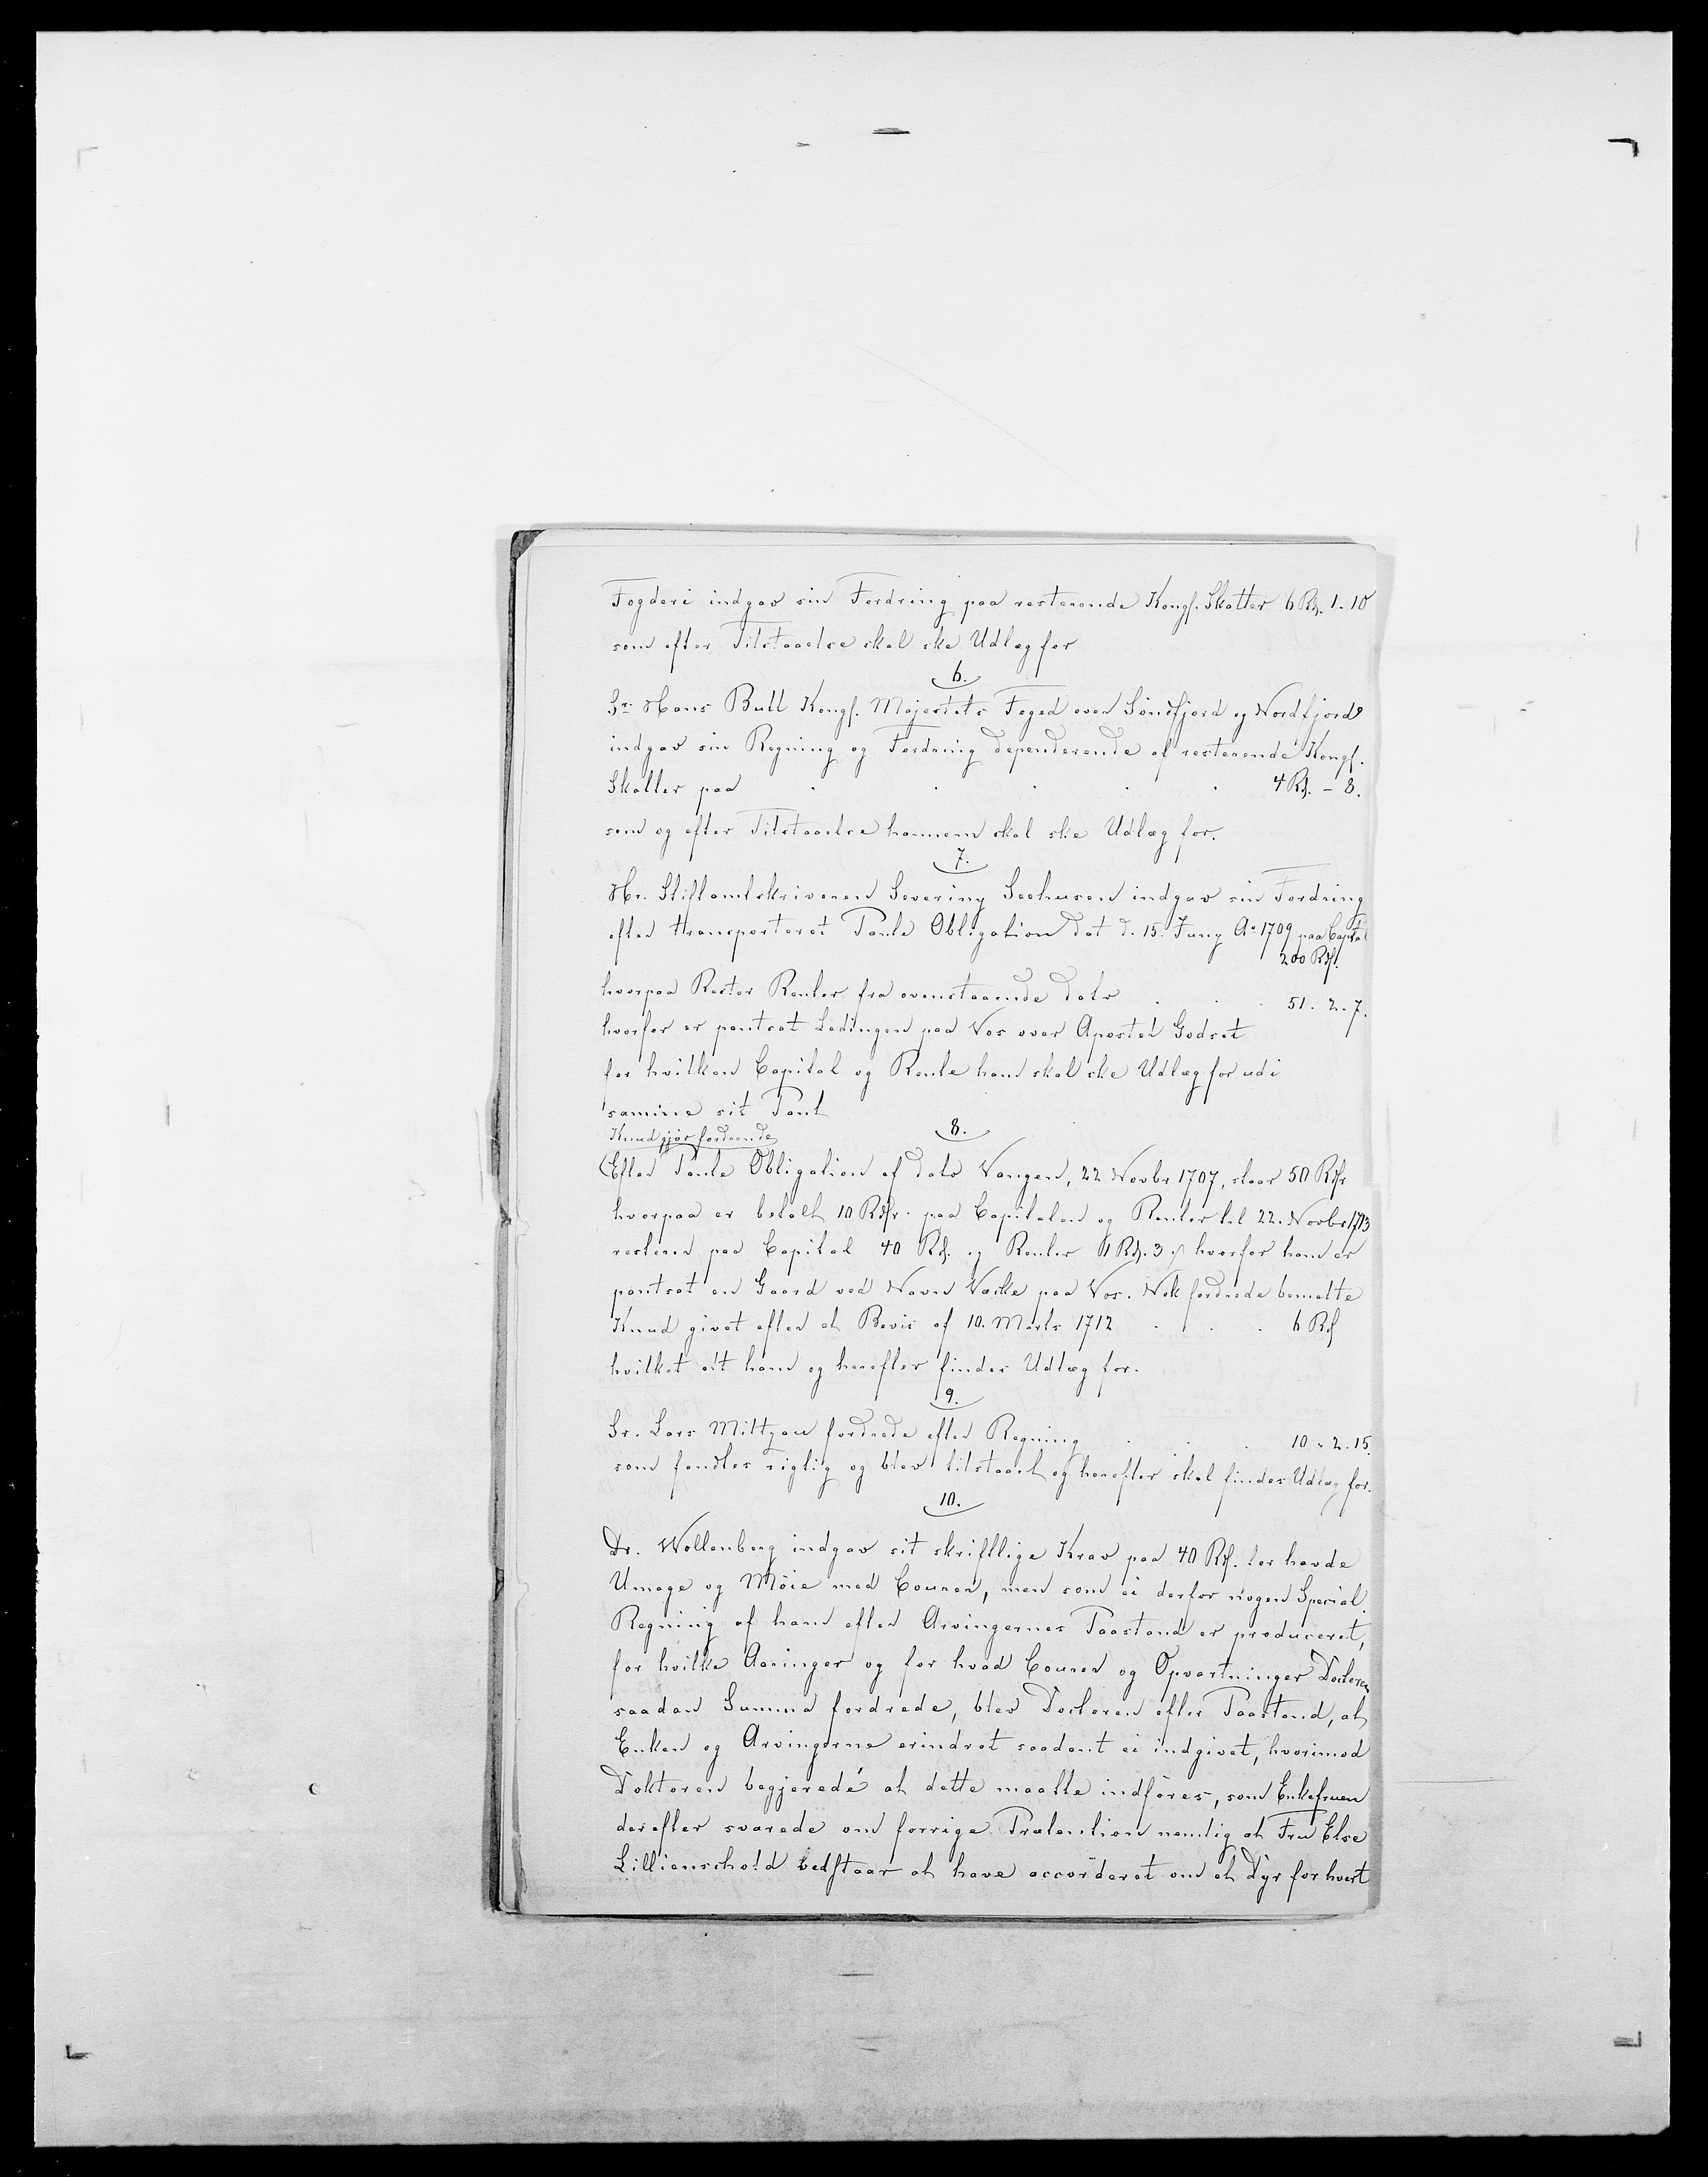 Fogderi indgav sin Fordring paa resterende Kongl. Skatter 6 Rd. 1. 10
som efter Tilstaaelse skal ske Udlæg for
6.
Sr. Hans Bull Kongl. Majestets Foged over Søndfjord og Nordfjord
indgav sin Regning og Fordring dependerende af resterende Kongl.
Skatter paa . . . . . 4 Rd. - 8.
som og efter Tilstaaelse hannem skal ske Udlæg for.
7.
Hr. Stiftamtskriveren Severiny Seehusen indgav sin Fordring
efter transporteret Pante Obligation dat d. 15. Juny Ao 1709 paa Capital
200 Rdr.
hvorpaa Rester Renter fra ovenstaaende dato . . . 51. 2. 7.
hvorfor er pantsat Ledingen paa Vos over Apostel Godset
for hvilken Capital og Rente ham skal ske Udlæg for udi
samme sit Pant
8.
Knud gjør fordrende
(Efter Pante Obligation af dato Vangen, 22 Novbr 1707, staar 50 Rdr
hvorpaa er betalt 10 Rdr. paa Capitalen og Renter til 22. Novbr 1713
resterer paa Capital 40 Rd. og Renter 1 Rd. 3 hvorfor ham er
pantsat en Gaard ved Navn paa Vos. Nok fordrede bemelte
Knud givet efter et Bevis af 10. Marts 1712 . . . 6 Rd
hvilket alt ham og herefter findes Udlæg for.
9.
Sr. Lars Miltzou fordrede efter Regning . . . 10. 2. 15.
som fandtes rigtig og blev tilstaaet og herefter skal findes Udlæg for.
10.
Dr. Wollenberg indgav sit skriftlige Krav paa 40 Rd. for havde
Umage og Møie med Couren, men som ei derfor nogen Special
Regning af ham efter Arvingernes Paastand er produceret,
for hvilke Aaringer og for hvad Couren og Opvartninger Doctoren
saadan Summa fordrede, blev Doctoren efter Paastand, at
Enken og Arvingerne erindret saadant ei indgivet, hvorimod
Doktoren begjerede at dette maatte indføres, som Enkefruen
derefter svarede om forrige Prætention nemlig at Fru Else
Lillienschold bedstaar at have accorderet om et Dyr for hvert